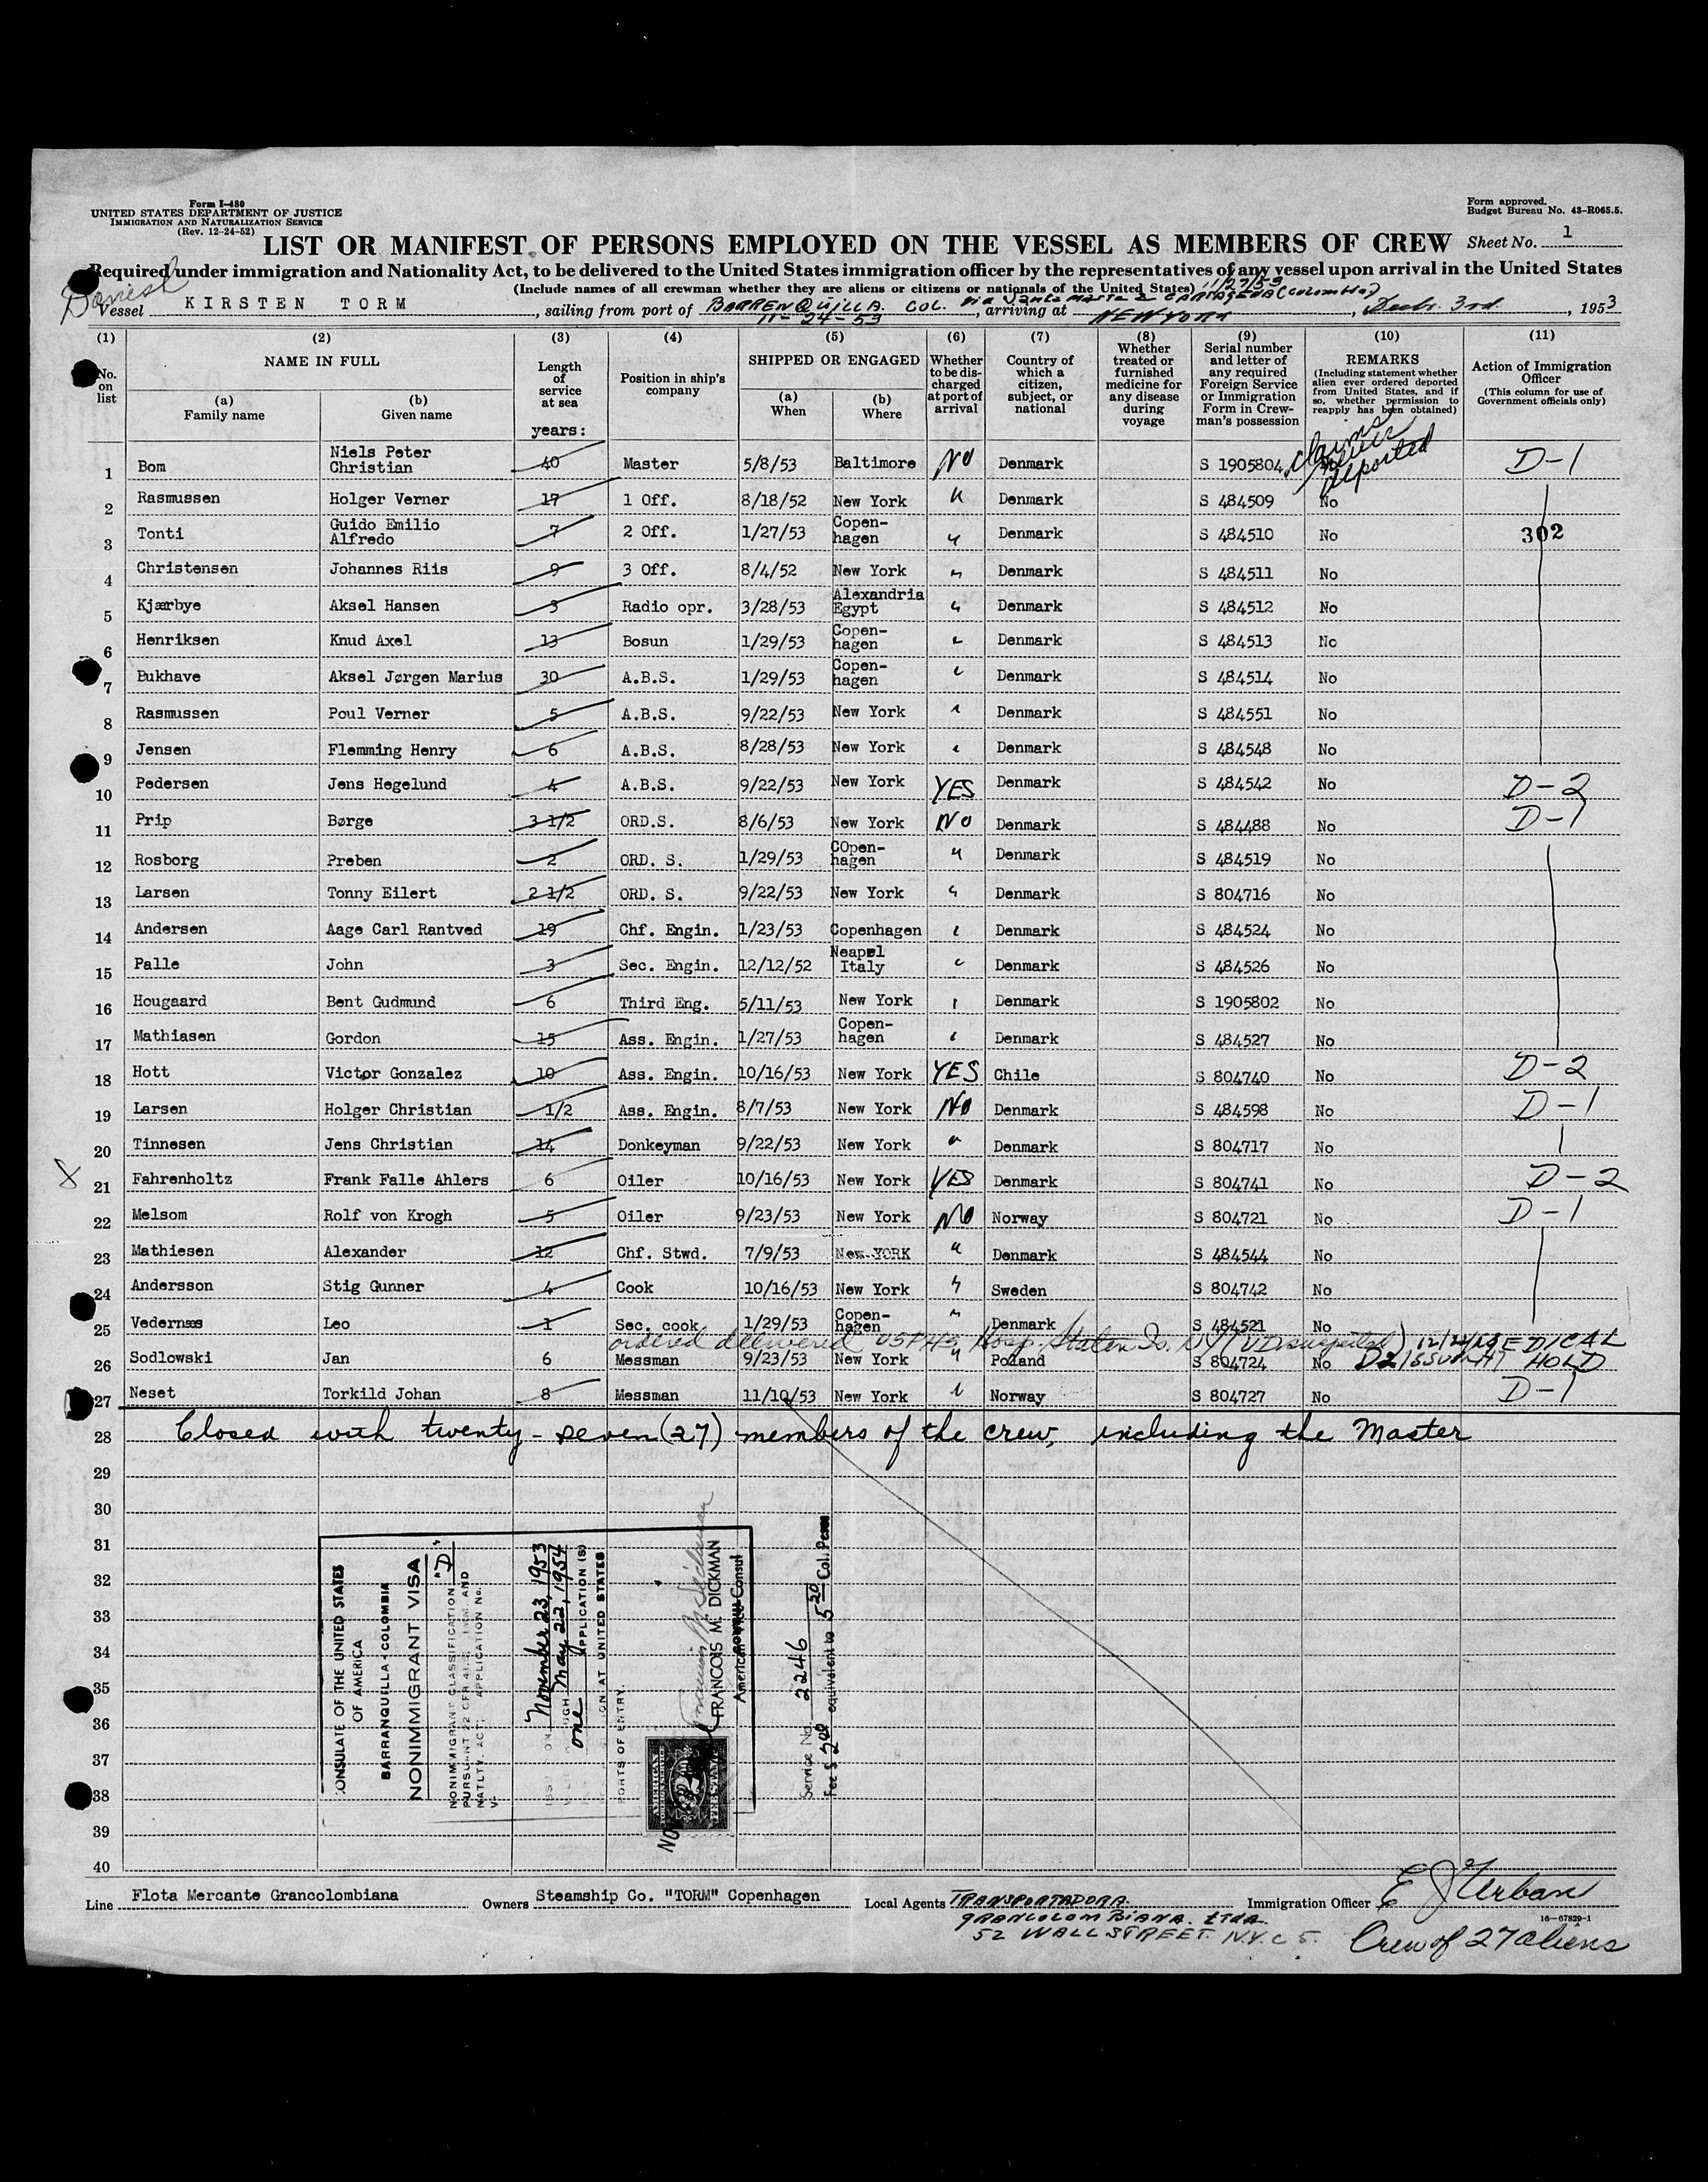 Form I-480
UNITED STATES DEPARTMENT OF JUSTICE
IMMIGRATION AND NATURALIZATION SERVICE
(Rev. 12-24-52)
Form approved.
Budget Bureau No. 43-R065.5.
LIST OR MANIFEST OF PERSONS EMPLOYED ON THE VESSEL AS MEMBERS OF CREW
Sheet No. 1
Required under immigration and Nationality Act, to be delivered to the United States immigration officer by the representatives of any vessel upon arrival in the United States
(Include names of all crewman whether they are aliens or citizens or nationals of the United States) 11/27/53
Danish
via Santa Marta & CARTAGENA (Colombia)
Vessel KIRSTEN TORM, sailing from port of BARRENQUILLA. COL., arriving at NEW YORK, Decbr. 3rd., 1953
11-24-53
(1) (2) (3) (4) (5) (6) (7) (8) (9) (10) (11)
No. on list
NAME IN FULL
(a) Family name
(b) Given name
Length of service at sea
years:
Position in ship's company
SHIPPED OR ENGAGED
(a) When
(b) Where
Whether to be discharged at port of arrival
Country of which a citizen, subject, or national
Whether treated or furnished medicine for any disease during voyage
Serial number and letter of any required Foreign Service or Immigration Form in Crewman's possession
REMARKS
(Including statement whether alien ever ordered deported from United States, and if so, whether permission to reapply has been obtained)
Action of Immigration Officer
(This column for use of Government officials only)
claims never deported
1 Bom Niels Peter Christian 40 Master 5/8/53 Baltimore NO Denmark S 1905804 D-1
2 Rasmussen Holger Verner 17 1 Off. 8/18/52 New York " Denmark S 484509 No
3 Tonti Guido Emilio Alfredo 7 2 Off. 1/27/53 Copen-hagen " Denmark S 484510 No 302
4 Christensen Johannes Riis 9 3 Off. 8/4/52 New York " Denmark S 484511 No
5 Kjærbye Aksel Hansen 3 Radio opr. 3/28/53 Alexandria Egypt " Denmark S 484512 No
6 Henriksen Knud Axel 13 Bosun 1/29/53 Copen-hagen " Denmark S 484513 No
7 Bukhave Aksel Jørgen Marius 30 A.B.S. 1/29/53 Copen-hagen " Denmark S 484514 No
8 Rasmussen Poul Verner 5 A.B.S. 9/22/53 New York " Denmark S 484551 No
9 Jensen Flemming Henry 6 A.B.S. 8/28/53 New York " Denmark S 484548 No
10 Pedersen Jens Hegelund 4 A.B.S. 9/22/53 New York YES Denmark S 484542 No D-2
11 Prip Børge 3 1/2 ORD.S. 8/6/53 New York NO Denmark S 484488 No D-1
12 Rosborg Preben 2 ORD. S. 1/29/53 COpen-hagen " Denmark S 484519 No
13 Larsen Tonny Eilert 2 1/2 ORD. S. 9/22/53 New York " Denmark S 804716 No
14 Andersen Aage Carl Rantved 19 Chf. Engin. 1/23/53 Copenhagen " Denmark S 484524 No
15 Palle John 3 Sec. Engin. 12/12/52 Neapel Italy " Denmark S 484526 No
16 Hougaard Bent Gudmund 6 Third Eng. 5/11/53 New York " Denmark S 1905802 No
17 Mathiasen Gordon 15 Ass. Engin. 1/27/53 Copen-hagen " Denmark S 484527 No
18 Hott Victor Gonzalez 10 Ass. Engin. 10/16/53 New York YES Chile S 804740 No D-2
19 Larsen Holger Christian 1/2 Ass. Engin. 8/7/53 New York NO Denmark S 484598 No D-1
20 Tinnesen Jens Christian 14 Donkeyman 9/22/53 New York " Denmark S 804717 No
X 21 Fahrenholtz Frank Falle Ahlers 6 Oiler 10/16/53 New York YES Denmark S 804741 No D-2
22 Melsom Rolf von Krogh 5 Oiler 9/23/53 New York NO Norway S 804721 No D-1
23 Mathiesen Alexander 12 Chf. Stwd. 7/9/53 New YORK " Denmark S 484544 No
24 Andersson Stig Gunner 4 Cook 10/16/53 New York " Sweden S 804742 No
25 Vedernæs Leo 1 Sec. cook 1/29/53 Copen-hagen " Denmark S 484521 No
ordered delivered USPHS Hosp. Staten Is. NY (VD suspected) MEDICAL
26 Sodlowski Jan 6 Messman 9/23/53 New York " Poland S 804724 No D2 ISSUED HOLD
27 Neset Torkild Johan 8 Messman 11/10/53 New York " Norway S 804727 No D-1
28 Closed with twenty-seven (27) members of the crew, including the Master
29
30
31
32
33
34
35
36
37
38
39
40
CONSULATE OF THE UNITED STATES
OF AMERICA
BARRANQUILLA - COLOMBIA
NONIMMIGRANT VISA
NONIMMIGRANT CLASSIFICATION "D"
PURSUANT 22 CFR 41.
NATLTY. ACT; APPLICATION No.
V-
ISSUED ON November 23, 1953
May 22, 1954
one APPLICATION (S)
ION AT UNITED STATES
PORTS OF ENTRY.
FRANCOIS M. DICKMAN
American Vice Consul
Service No. 2246
Fee $ 2.00 equivalent to 5.20 Col. Pesos
Line Flota Mercante Grancolombiana
Owners Steamship Co. "TORM" Copenhagen
Local Agents TRANSPORTADORA.
GRANCOLOMBIANA. LTDA.
52 WALL STREET. N.Y.C 5.
Immigration Officer E J Urban
16-67829-1
Crew of 27 aliens